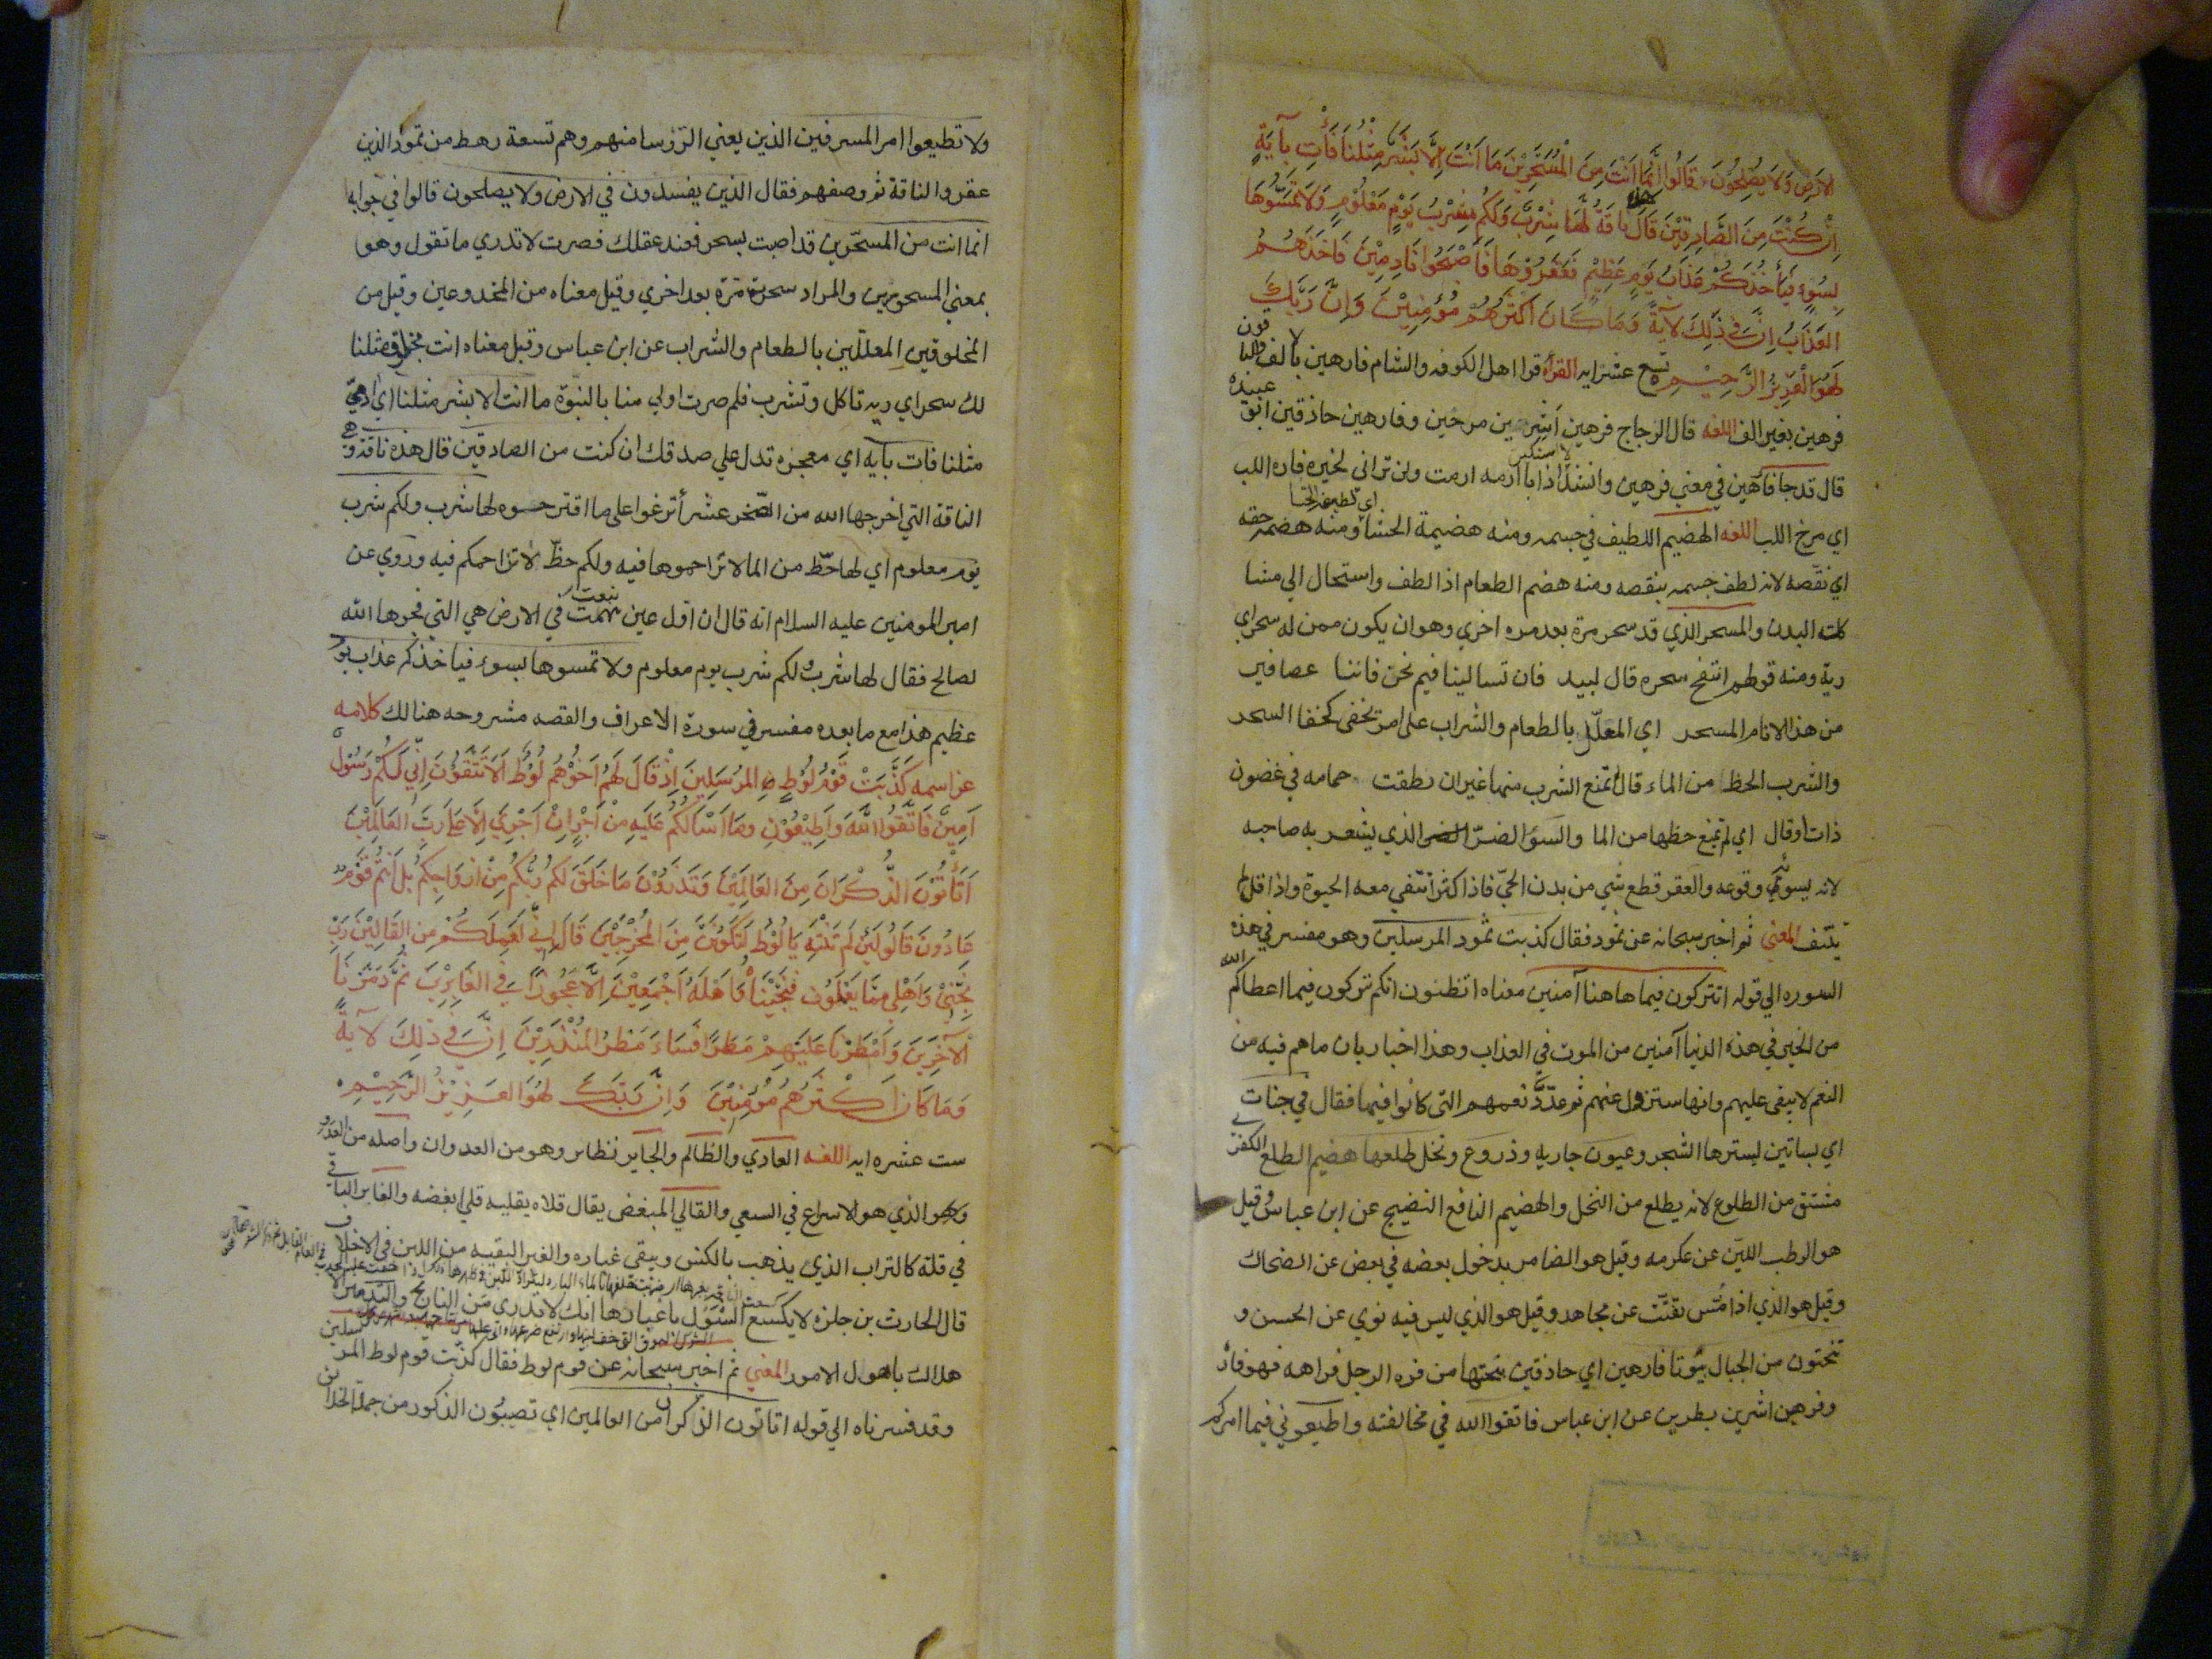 الارض ولا يصلحون قالوا انما انت من المسحرين ما انت الا بشر مثلنا فأت بآية
ان كنت من الصادقين قال هذه ناقة لها شرب ولكم شرب يوم معلوم ولا تمسوها
بسوء فيأخذكم عذاب يوم عظيم فعقروها فأصبحوا نادمين فأخذهم
العذاب ان في ذلك لآية وما كان اكثرهم مؤمنين وان ربك
لهو العزيز الرحيم تسع عشرايه القرأه قرا اهل الكوفه والشام فارهين بالف والباقون
فرهين بغير الف اللغه قال الزجاج فرهين اشرين مرحين وفارهين حاذقين ابو عبيده
قال قد جا فارهين في معني فرهين وانشد لا استكين اذا ما ازمه ازمت ولن تراني لخير فاره اللبب
اي مرخ اللبب اللغه الهضيم اللطيف في جسمه ومنه هضيمة الحشا اي لطيفة الحشا ومنه هضمه حقه
اي نقصه لانه لطف جسمه بنقصه ومنه هضم الطعام اذا لطف واستحال الي مشا
كلة البدن والمسحر الذي قد سحر مرة بعد مره اخري وهو ان يكون ممن له سحر اي
رية ومنه قولهم انتفخ سحره قال لبيد فان تسالينا فيم نحن فاننا عصافير
من هذا الانام المسحر اي المعلّل بالطعام والشراب على امر يخفى كخفا السحر
والشرب الحظ من الماء قال لم تمنع الشرب منها غير ان نطقت حمامه في غصون
ذات اوقال اي لم تمنع حظها من الما والسوء الضرّ الذي يشعر به صاحبه
لانه يسوئه وقوعه والعقر قطع شي من بدن الحيّ فاذا كثر انتفي معه الحيوة واذا قل لم
ينتف المعني ثم اخبر سبحانه عن ثمود فقال كذبت ثمود المرسلين وهو مفسر في هذه
السوره الي قوله اتتركون فيما هاهنا آمنين معناه اتظنون انكم تتركون فيما اعطاكم الله
من الخير في هذه الدنيا آمنين من الموت في العذاب وهذا اخبار بان ما هم فيه من
النعم لا يبقى عليهم وانها ستزول عنهم ثم عدّد نعمهم التي كانوا فيها فقال في جنات
اي بساتين يسترها الشجر وعيون جاريه وزروع ونخل طلعها هضيم الطلع الكفرّي
مشتق من الطلوع لانه يطلع من النخل والهضيم اليانع النضيج عن ابن عباس وقيل
هو الرطب الليّن عن عكرمه وقيل هو الضامر بدخول بعضه في بعض عن الضحاك
وقيل هو الذي اذا مُسّ تفتّت عن مجاهد وقيل هو الذي ليس فيه نوي عن الحسن و
تنحتون من الجبال بيوتا فارهين اي حاذقين بنحتها من فره الرجل فراهه فهو فاره
وفرهين اشرين بطرين عن ابن عباس فاتقوا الله في مخالفته واطيعوني فيما امركم
ولا تطيعوا امر المسرفين الذين يعني الرؤسا منهم وهم تسعة رهط من ثمود الذين
عقروا الناقة ثم وصفهم فقال الذين يفسدون في الارض ولا يصلحون قالوا في جوابه
انما انت من المسحّرين قد اصبت بسحر ففسد عقلك فصرت لا تدري ما تقول وهو
بمعني المسحورين والمراد سحرت مرّة بعد اخري وقيل معناه من المخدوعين وقيل من
المخلوقين المعللّين بالطعام والشراب عن ابن عباس وقيل معناه انت مخلوق مثلنا
لك سحر اي ريه تاكل وتشرب فلم صرت اولي منا بالنبوّة ما انت الا بشر مثلنا اي ادمي
مثلنا فات بآيه اي معجزه تدل علي صدقك ان كنت من الصادقين قال هذه ناقة وهي
الناقة التي اخرجها الله من الصخر عشرأ ترغوا على ما اقترحوه لها شرب ولكم شرب
يوم معلوم اي لها حظّ من الما لا تزاحموها فيه ولكم حظّ لا تزاحمكم فيه وروي عن
امير المومنين عليه السلام انه قال ان اوّل عين نبعت في الارض هي التي فجرها الله
لصالح فقال لها شرب ولكم شرب يوم معلوم ولا تمسوها بسوء فياخذكم عذاب يوم
عظيم هذا مع ما بعده مفسر في سورة الاعراف والقصه مشروحه هنالك كلامه
عز اسمه كذبت قوم لوط المرسلين اذ قال لهم اخوهم لوط الا تتقون اني لكم رسول
امين فاتقوا الله واطيعون وما اسألكم عليه من اجر ان اجري الا على رب العالمين
اتأتون الذكران من العالمين وتذرون ما خلق لكم ربكم من ازواجكم بل انتم قوم
عادون قالوا لئن لم تنته يا لوط لتكونن من المخرجين قال اني لعملكم من القالين رب
نجني واهلي مما يعملون فنجيناه واهله اجمعين الا عجوزا في الغابرين ثم دمرنا
الآخرين وامطرنا عليهم مطرا فساء مطر المنذرين ان في ذلك لآية
وما كان اكثرهم مؤمنين وان ربك لهو العزيز الرحيم
ست عشره ايه اللغه العادي والظالم والجاير نظاير وهو من العدوان واصله من العدو
وهو الذي هو الاسراع في السعي والقالي المبغض يقال قلاه يقليه قلي ابغضه والغابر الباقي
في قلة كالتراب الذي يذهب بالكنس ويبقى غباره والغبر البقيه من اللبن في الاخلاف
قال الحارث بن حلزه لا تكسع الشول باغبارها انك لا تدري من الناتج والتدمير الا
هلاك باهول الامور المعني ثم اخبر سبحانه عن قوم لوط فقال كذّبت قوم لوط المرسلين
وقد فسرناه الي قوله اتاتون الذكران من العالمين اي تصيبون الذكور من جملة الخلائق